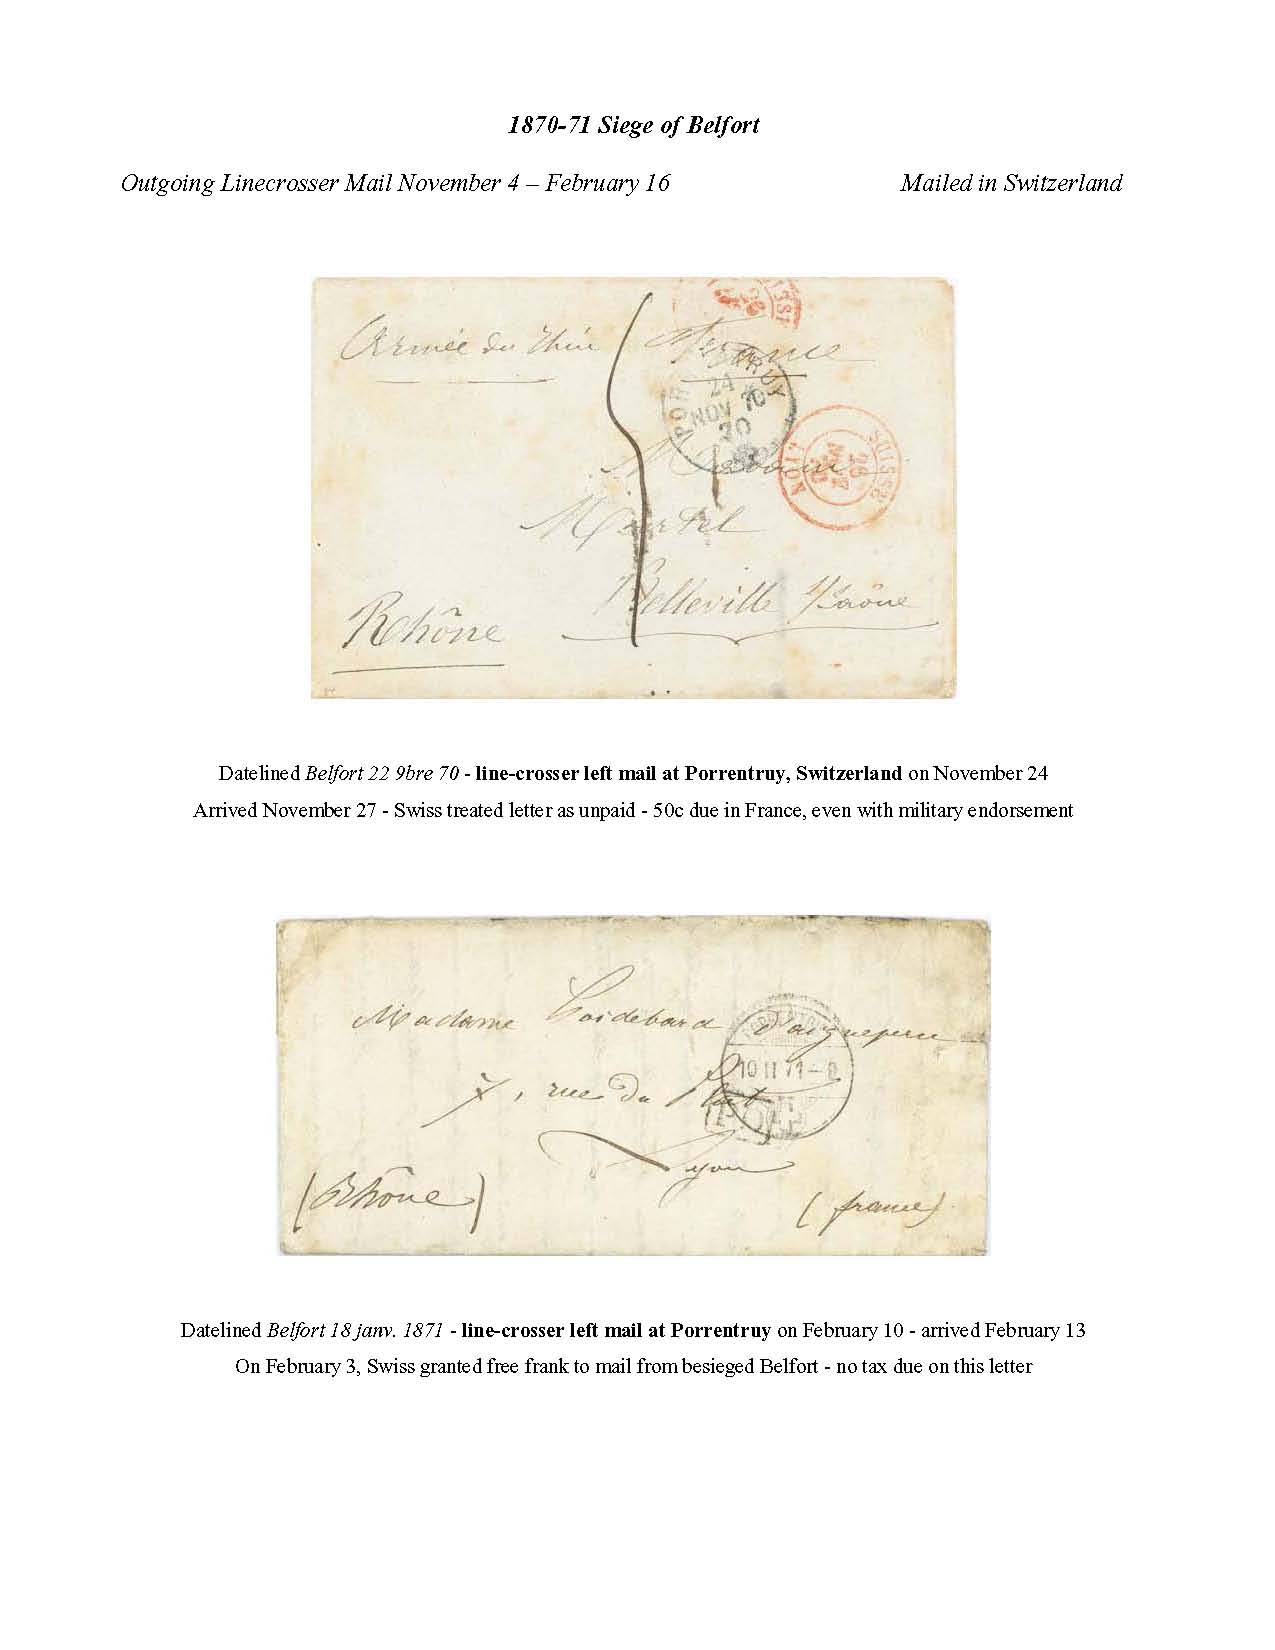 1870-71 Siege of Belfort
Outgoing Linecrosser Mail November 4 – February 16 Mailed in Switzerland
Armée du Rhin
France
PORRENTRUY
24
NOV 70
SUISSE
LYON
Martel
Belleville s/Saône
Rhône
Datelined Belfort 22 9bre 70 - line-crosser left mail at Porrentruy, Switzerland on November 24
Arrived November 27 - Swiss treated letter as unpaid - 50c due in France, even with military endorsement
Madame d'aigueperse
10 II 71-8
7, rue du Plat
Lyon
(Rhône)
(france)
Datelined Belfort 18 janv. 1871 - line-crosser left mail at Porrentruy on February 10 - arrived February 13
On February 3, Swiss granted free frank to mail from besieged Belfort - no tax due on this letter